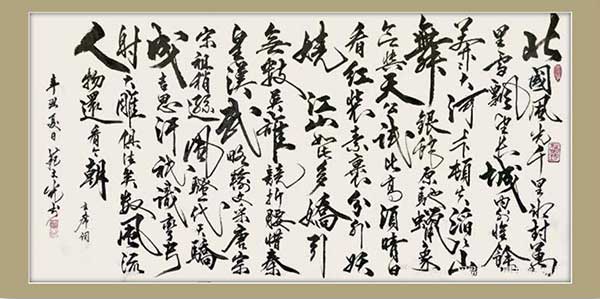 北國風光千里冰封萬
里雪飄望長城內外惟餘
莽莽大河上下頓失滔滔山
舞銀蛇原馳蠟象
欲與天公試比高須晴日
看紅裝素裹分外妖
嬈江山如此多嬌引
無數英雄競折腰惜秦
皇漢武略輸文采唐宗
宋祖稍遜風騷一代天驕
成吉思汗祇識彎弓
射大雕俱往矣數風流
人物還看今朝
主席詞
辛丑夏日